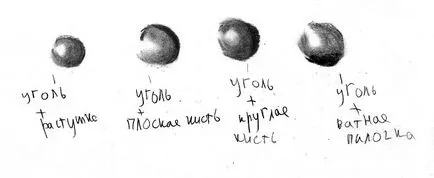 уголь
+
растушка
уголь
+
плоская кисть
уголь
+
круглая
кисть
уголь
+
ватная
палочка